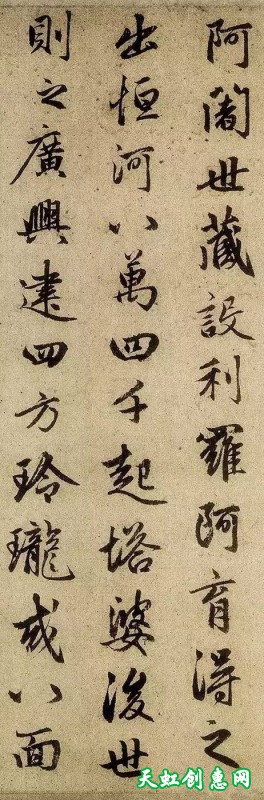 阿闍世藏設利羅阿育得之
出恒河八萬四千起塔婆後世
則之廣興建四方玲瓏或八面
天虹创惠网